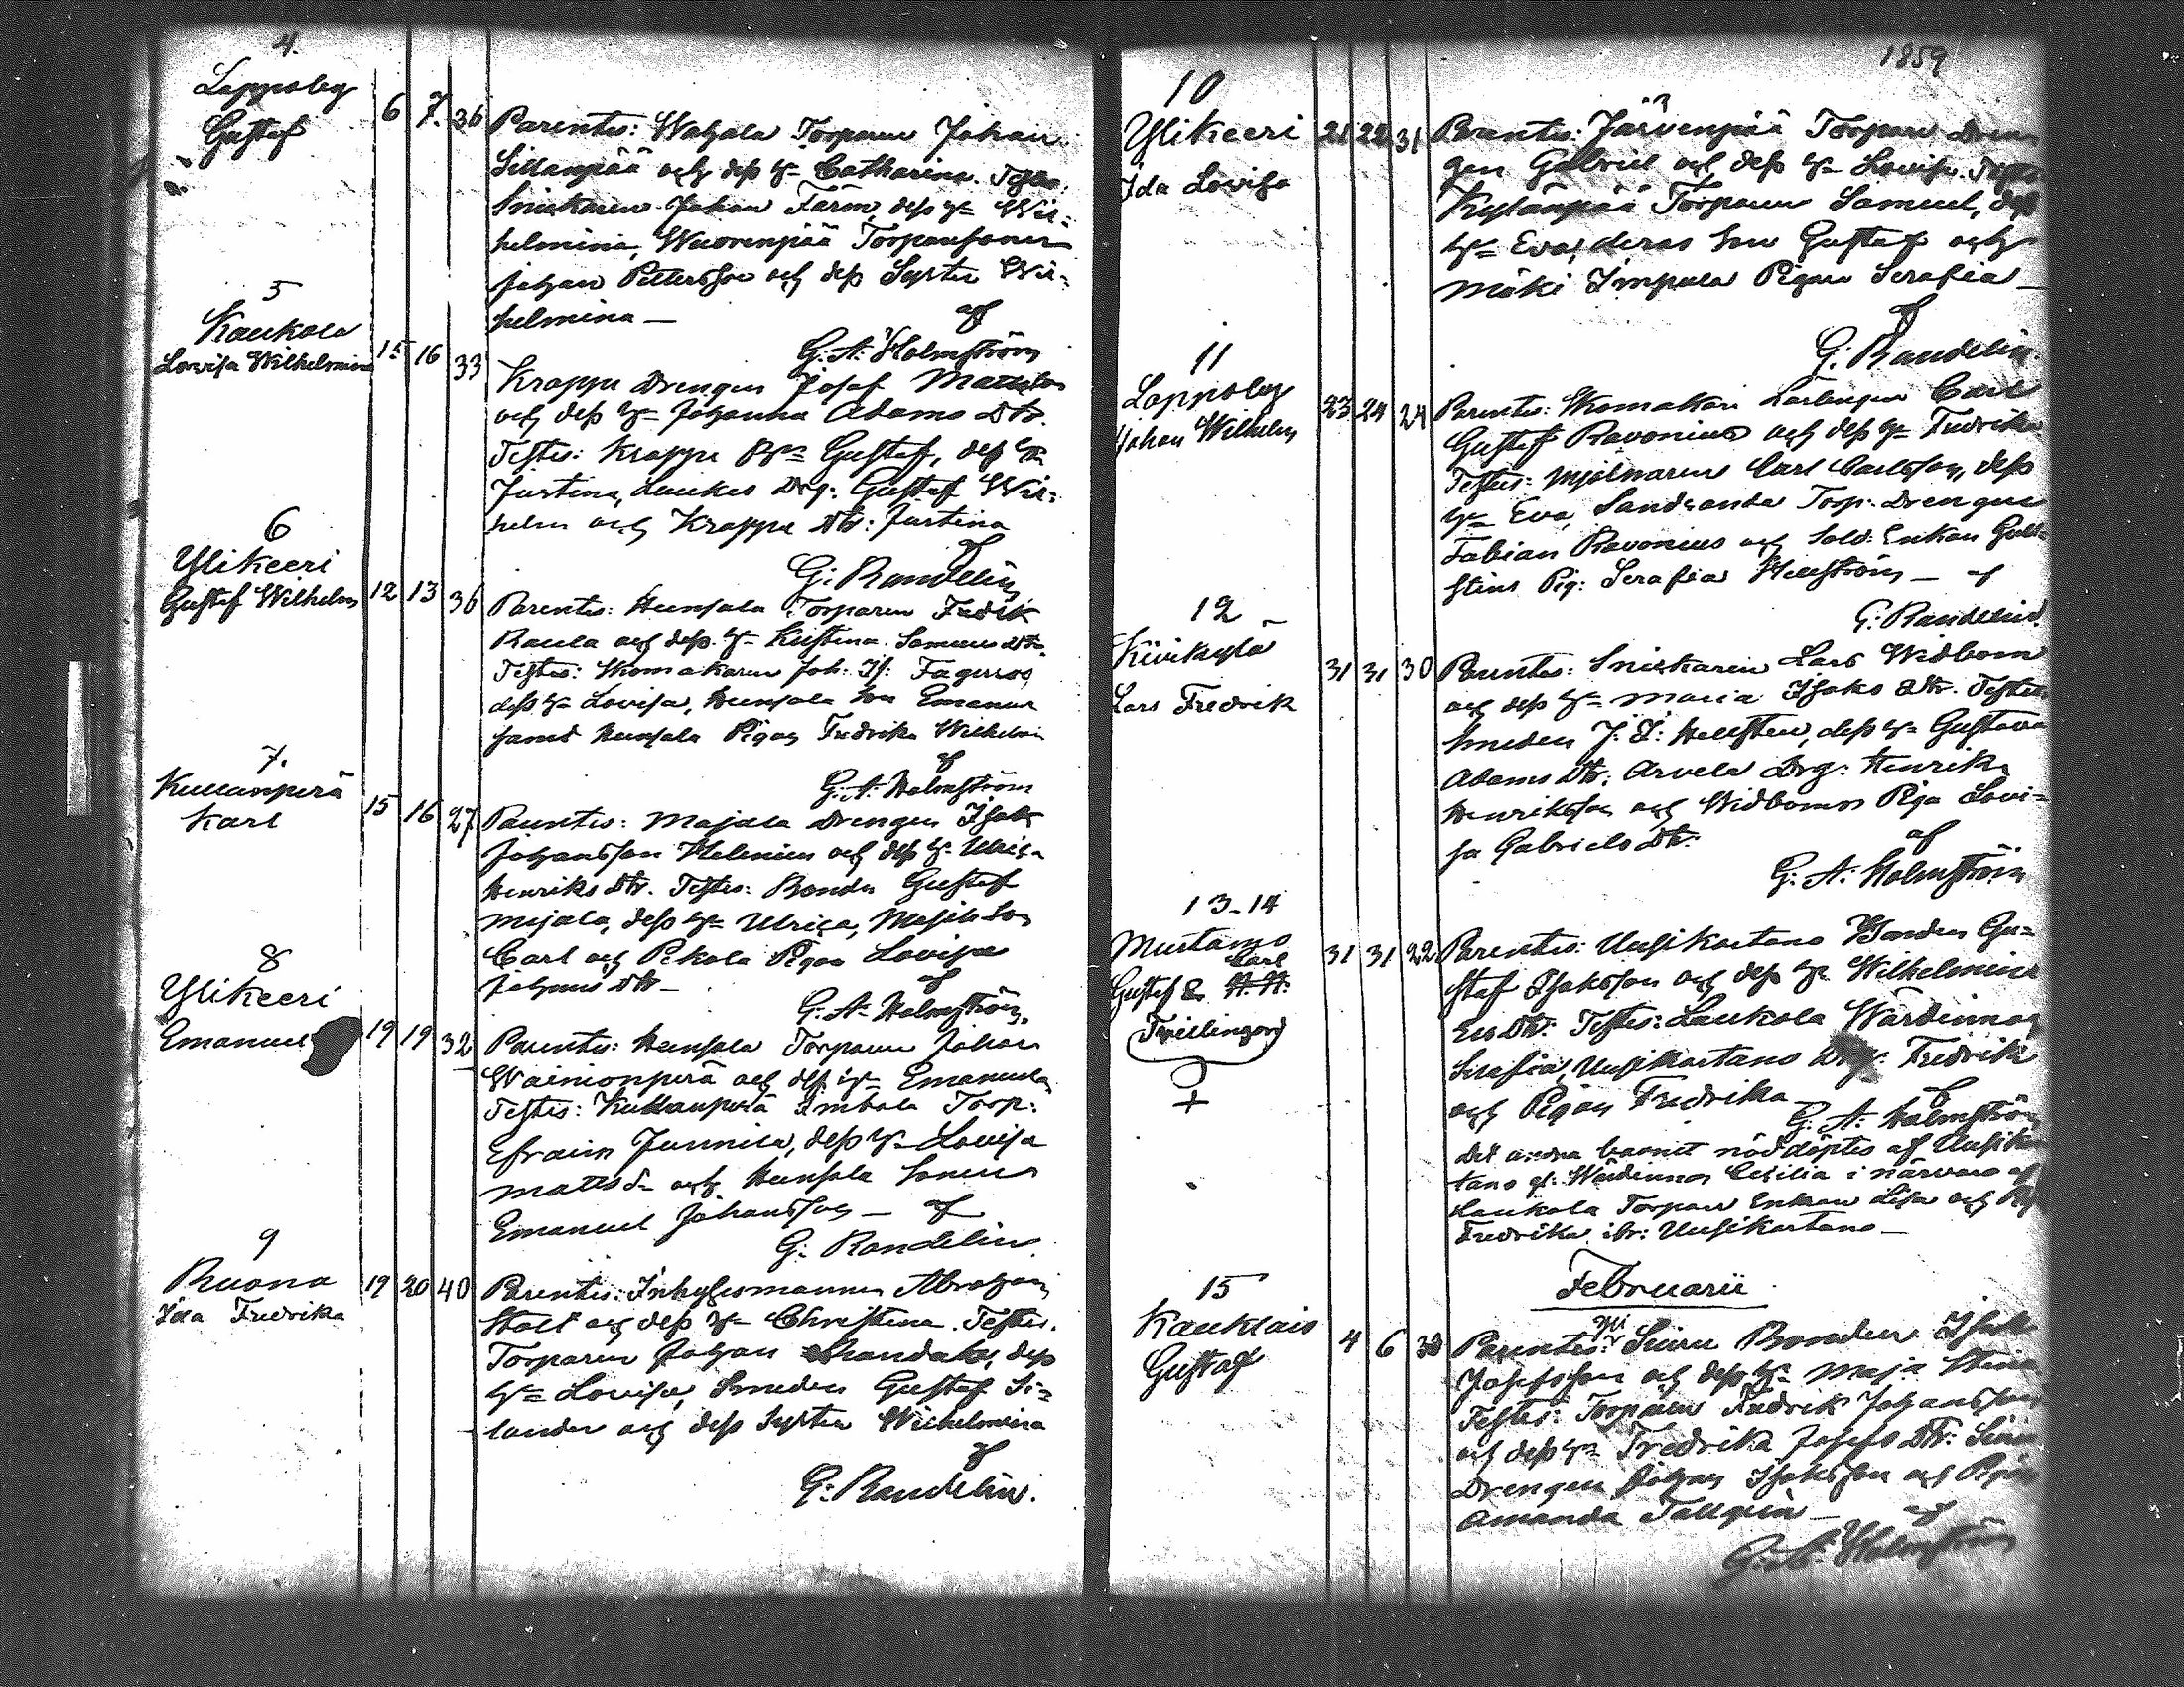 4.
Lappsby
Gustaf
6 7. 36
Parentes: Wahala Torparen Johan
Sillanpää och dess H= Catharina. Testes:
Snickaren Johan Färm, dess H= Wil=
helmina, Wuorenpää Torparesonen
Johan Pettersson och dess Syster Wil=
helmina —
af
G: A: Holmström
5
Kaukola
Lovisa Wilhelmina
15 16 33
Krappe Drengen Josef Mattsson
och dess H= Johanna Adams Dtr.
Testes: Krappe Gustaf, dess H=
Justina, Laukus Drg: Gustaf Wil=
helm och Krappe Dtr: Justina
af
G: Randelin
6
Ylikeeri
Gustaf Wilhelm
12 13 36
Parentes: Hunsala Torparen Fredrik
Raula och dess H= Kristina Samuels Dtr.
Testes: Skomakaren Joh: Is: Fagerroos
dess H= Lovisa, Hunsala Son Emanuel
samt Hunsala Pigan Fredrika Wilhelmina
af
G: A: Holmström
7.
Kullanperä
Karl
15 16 27
Parentes: Majala Drengen Isak
Johansson Helenius och dess H= Ulrica
Henriks Dtr. Testes: Bonden Gustaf
Majala, dess H= Ulrica, Son
Carl och Pekola Pigan Lovisa
Johans Dtr —
af
G: A: Holmström
8
Ylikeeri
Emanuel
19 19 32
Parentes: Hunsala Torparen Johan
Wainionperä och dess H= Emanuela
Testes: Kullanperä Imbala Torp:
Efraim Junnila, dess H= Lovisa
Matts d= och Hunsala Sonen
Emanuel Johansson — af
G: Randelin
9
Ruona
Ida Fredrika
19 20 40
Parentes: Inhysesmannen Abraham
Stolt och dess H= Christina. Testes.
Torparen Johan dess
H= Lovisa, Smeden Gustaf Si=
lander och dess Syster Wilhelmina
af
G: Randelin.
1859
10
Ylikeeri
Ida Lovisa
21 22 31
Parentes: Järvenpää Torpare Dren
gen Gabriel och dess H= Lovisa. Testes
Kylänpää Torparen Samuel, dess
H= Eva, deras Son Gustaf och
Mäki Impola Pigan Serafia —
af
G: Randelin.
11
Lappsby
Johan Wilhelm
23 24 24
Parentes: Skomakare Lärlingen Carl
Gustaf Ravonius och dess H= Fredrika
Testes: Mjölnaren Carl Carlsson, dess
H= Eva, Sandranda Torp: Drengen
Fabian Ravonius och Sold: Enkan Guld=
stens Pig: Serafia Hellström — af
G: Randelin.
12
Kiivikylä
Lars Fredrik
31 31 30
Parentes: Snickaren Lars Widbom
och dess H= Maria Isaks Dtr. Testes
Smeden J: F: Hellsten, dess H= Gustava
Adams Dtr: Arvela Drg: Henrik
Henriksson och Widboms Piga Lovi=
sa Gabriels Dtr:
af
G: A: Holmström
13-14
Mustamo
Carl
Gustaf &
Tvillingar
31 31 22
Parentes: Uusikartano Bonden Gu=
staf Isaksson och dess H= Wilhelmina
Ers Dtr: Testes: Laukola Wärdinnan
Serafia, Uusikartano Drg: Fredrik
och Pigan Fredrika —
af
G: A: Holmström
Det andra barnet nöddöptes af Uusikar
tano gl: Wärdinnan Cecilia i närvaro af
Laukola Torpare Enkan Lisa och Pig
Fredrika ibr: Uusikartano —
Februarii
15
Kauklais
Gustaf
4 6
Parentes: Yli Siiru Bonden Isak
Josefsson och dess H= Maja Stina
Testes: Torparen Fredrik Johansson
och dess H= Fredrika Josefs Dtr: Siiru
Drengen Johan Isaksson och Pigan
Amanda Tallqvin — af
G: A: Holmström